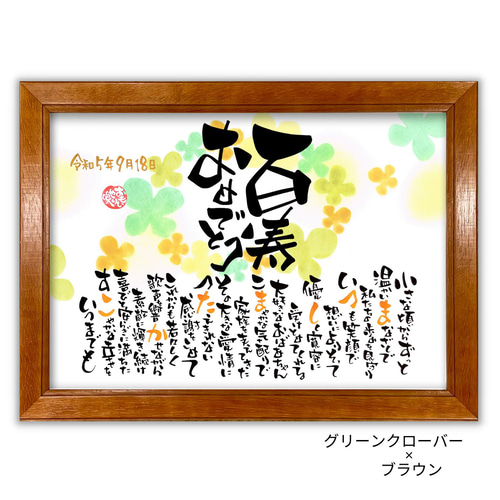 令和5年9月18日
百寿
おめでとう
小さな頃からずっと
温かいまなざしで
私たちの歩みを見守り
いつも笑顔で
想いによりそって
優しく寛容に
受けとめてくれる
大好きなおばあちゃん
こまやかな気配りで
家族を支えてきた
その大きな愛情に
つたえきれない
感謝をよせて
これからも若々しく
歓声響かせながら
素敵に輝き続け
喜びと安らぎに満ちた
すこやかな日々を
いつまでも
グリーンクローバー
×
ブラウン